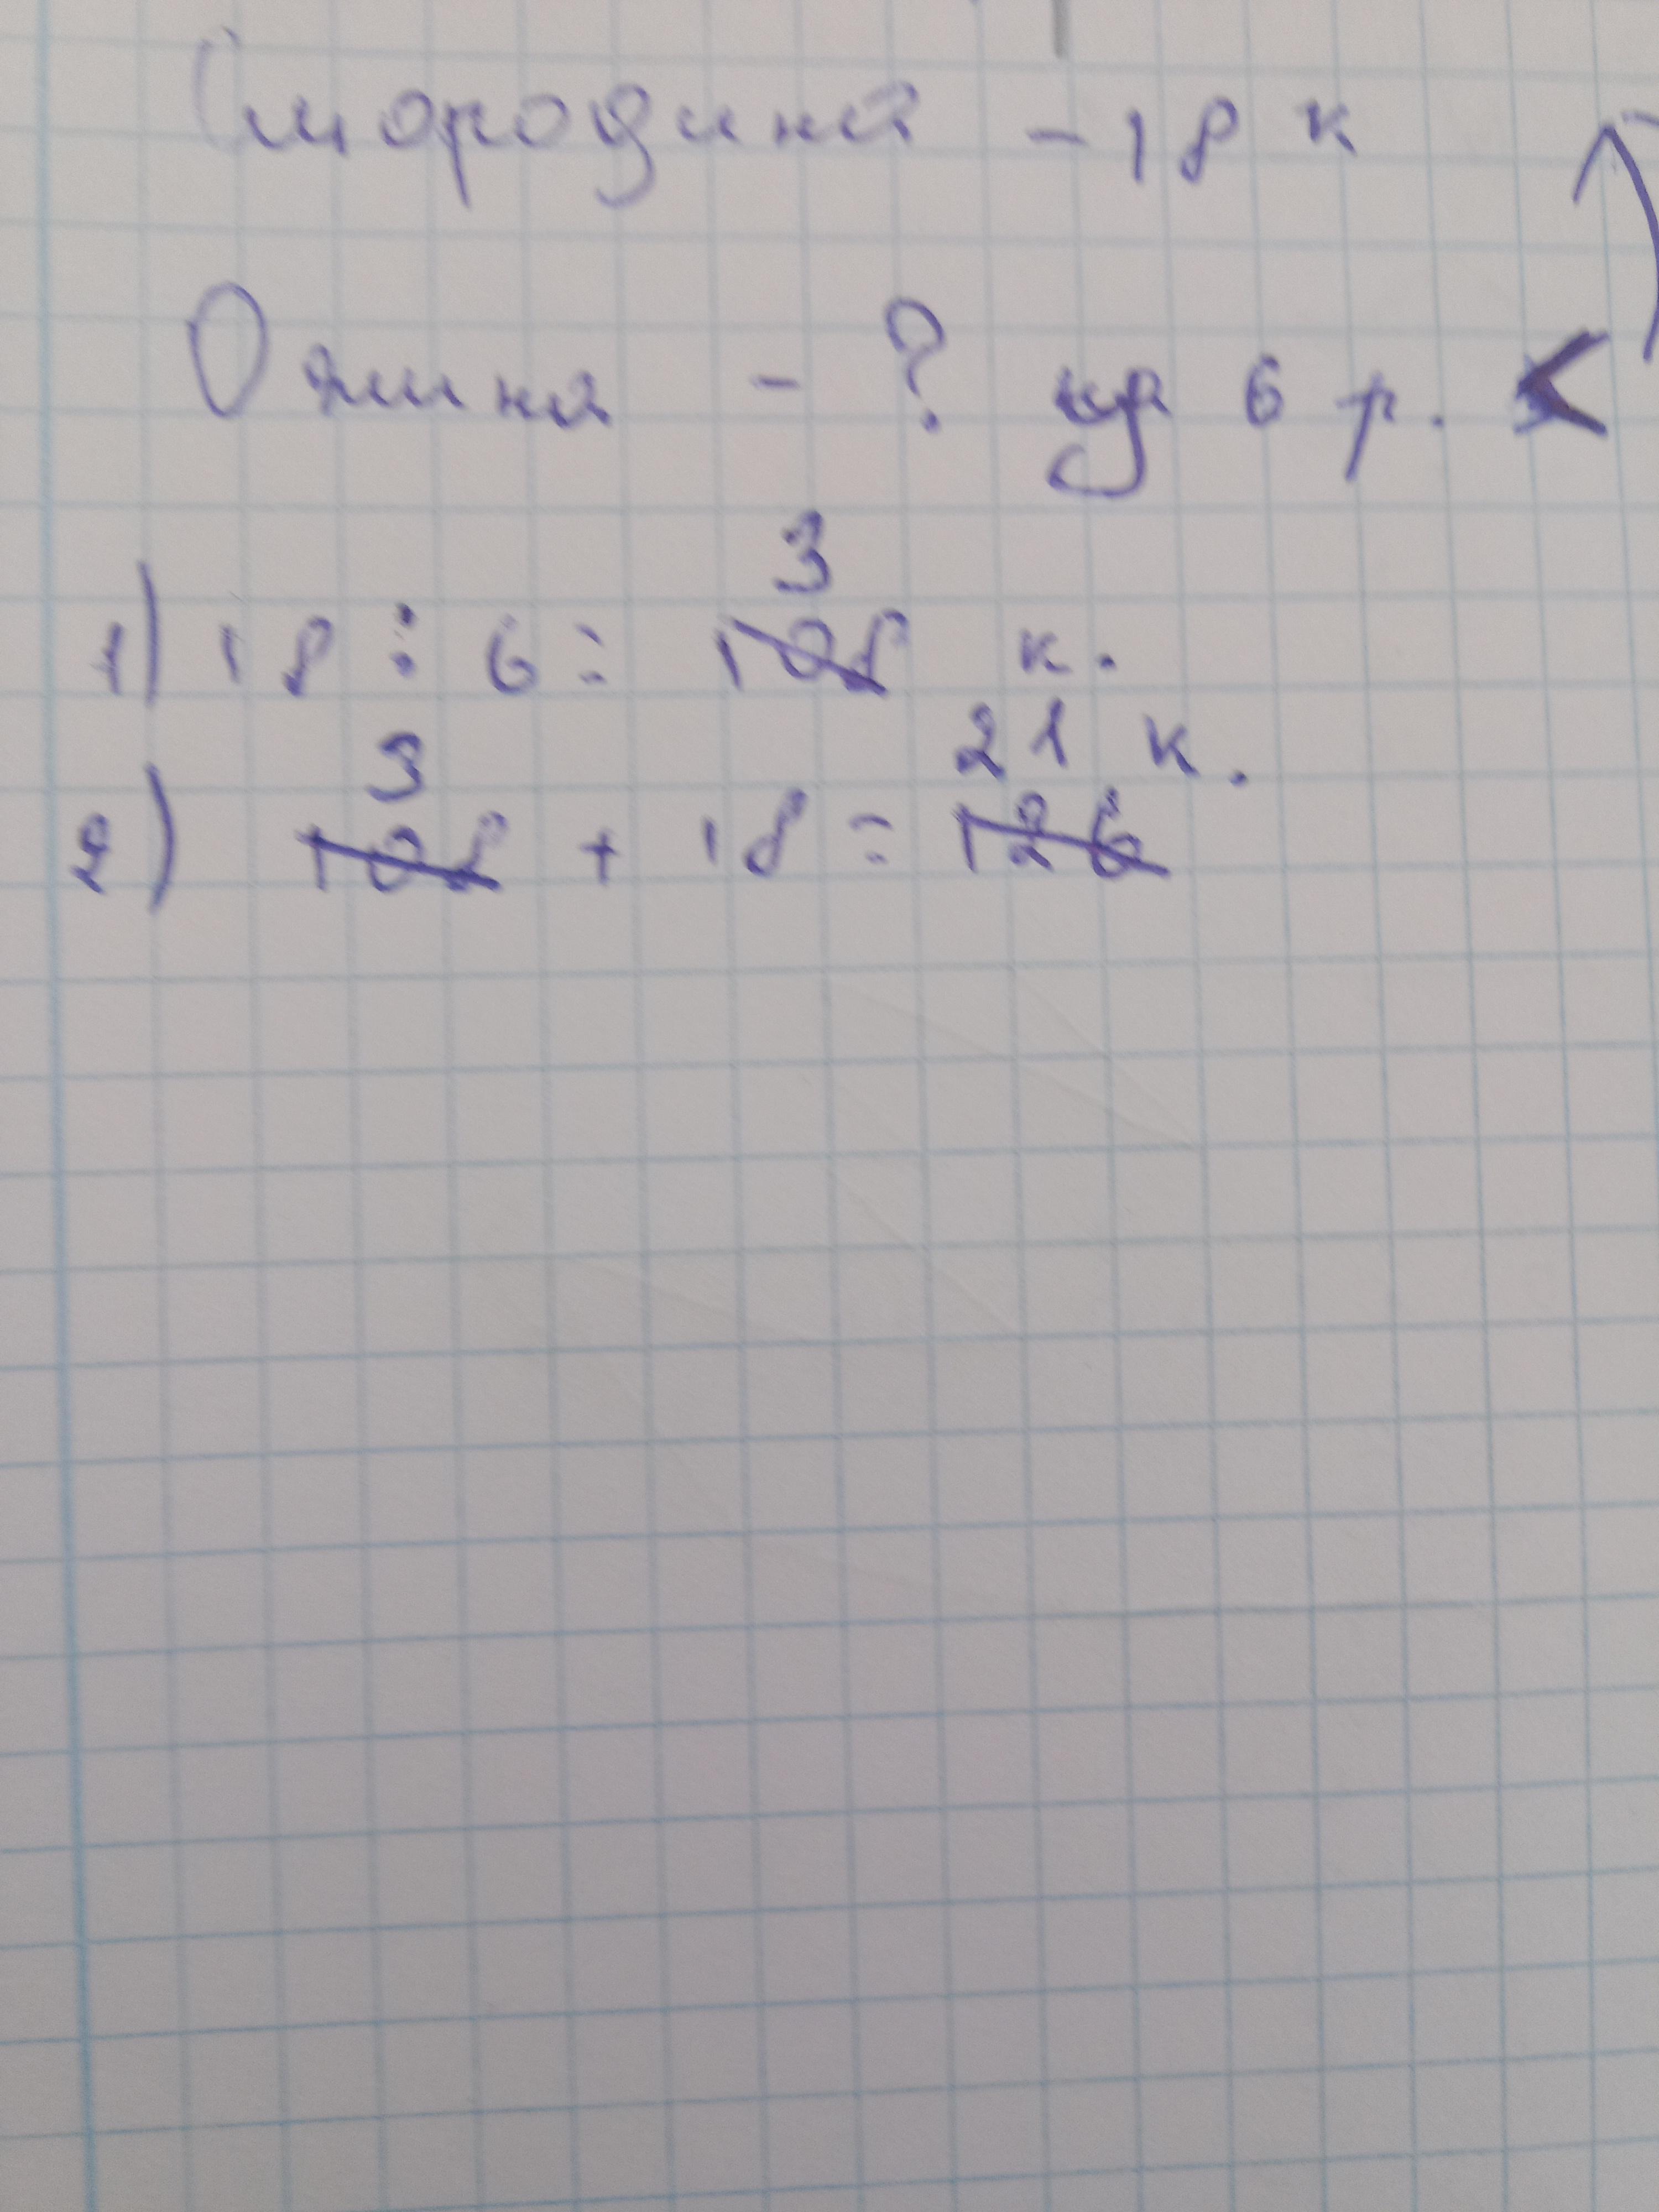 Смородина - 18 к
Ожина - ? 6 р. <
3
1) 18 : 6 = 108 к.
3 21 к.
2) 108 + 18 = 126